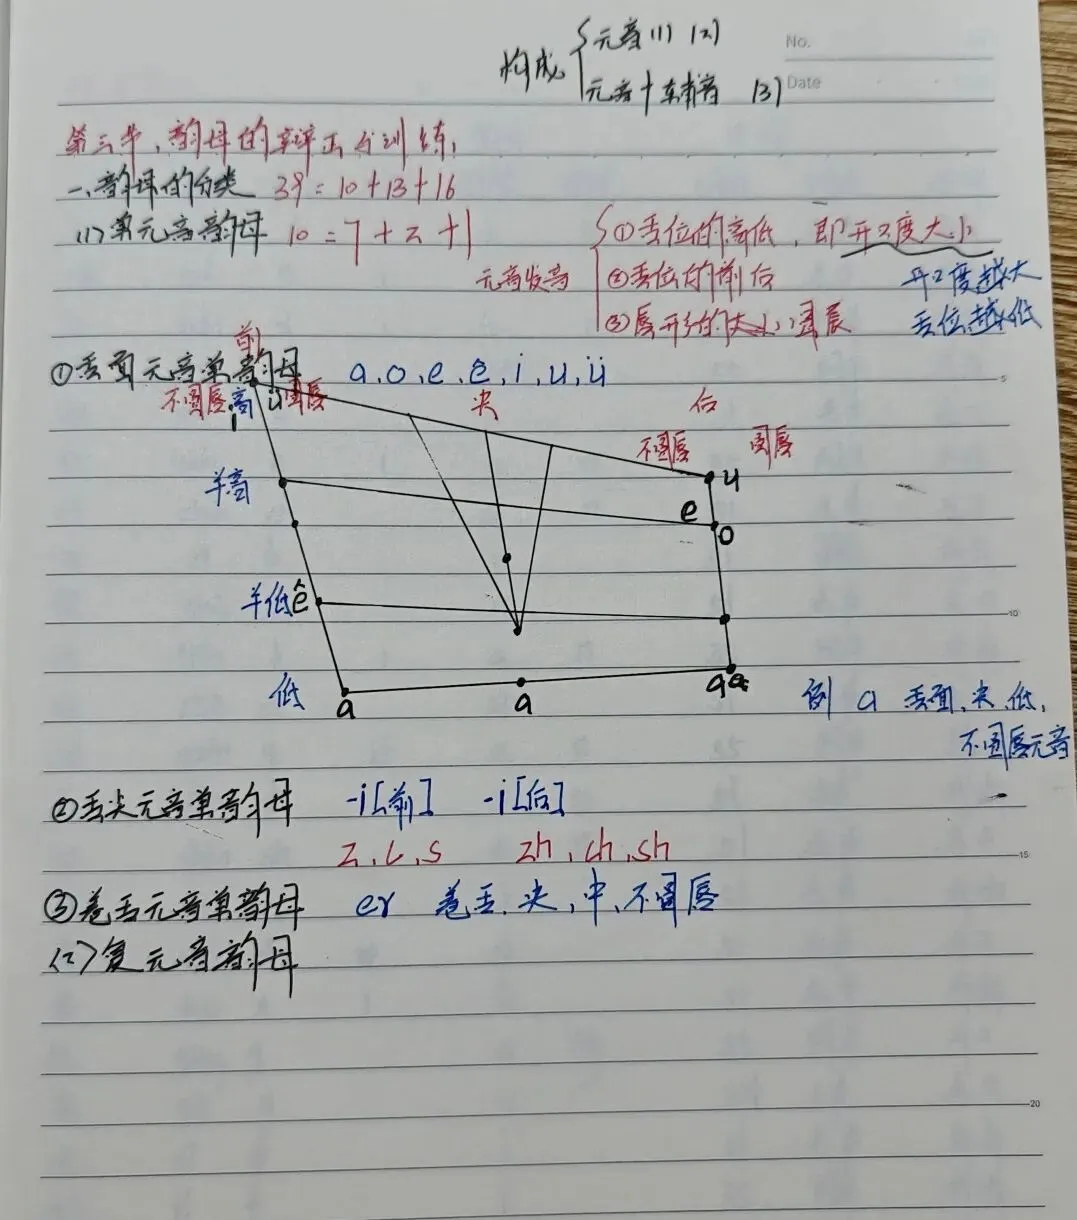 构成 { 元音(1) (2)
元音+辅音 (3)
No.
Date
第三节、韵母的辩正与训练:
一、韵母的分类 39=10+13+16
(1)单元音韵母 10=7+2+1
元音发音 { ①舌位的高低,即开口度大小
②舌位的前后 开口度越大
③唇形的大小、圆展 舌位越低
①舌面元音单韵母 a、o、e、ê、i、u、ü
前 央 后
不圆唇 高 圆唇 不圆唇 圆唇
i ü u
半高 e o
半低 ê
低 a a ɑ
例 a 舌面、央、低、
不圆唇元音
②舌尖元音单韵母 -i[前] -i[后]
z、c、s zh、ch、sh
③卷舌元音单韵母 er 卷舌、央、中、不圆唇
(2)复元音韵母
5
10
15
20